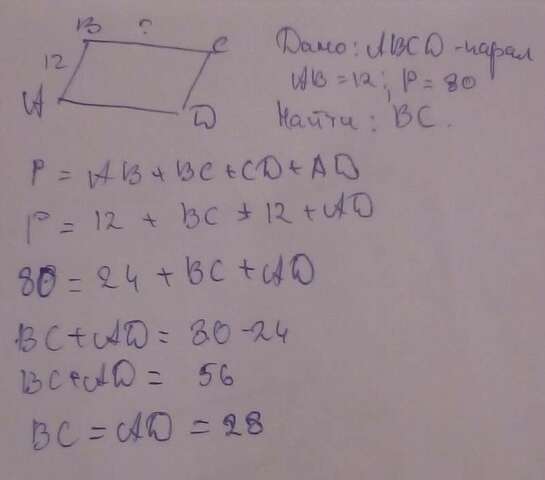 B ? C
12
A D
Дано: ABCD - парал
AB = 12; P = 80
Найти: BC.
P = AB + BC + CD + AD
P = 12 + BC + 12 + AD
80 = 24 + BC + AD
BC + AD = 80 - 24
BC + AD = 56
BC = AD = 28